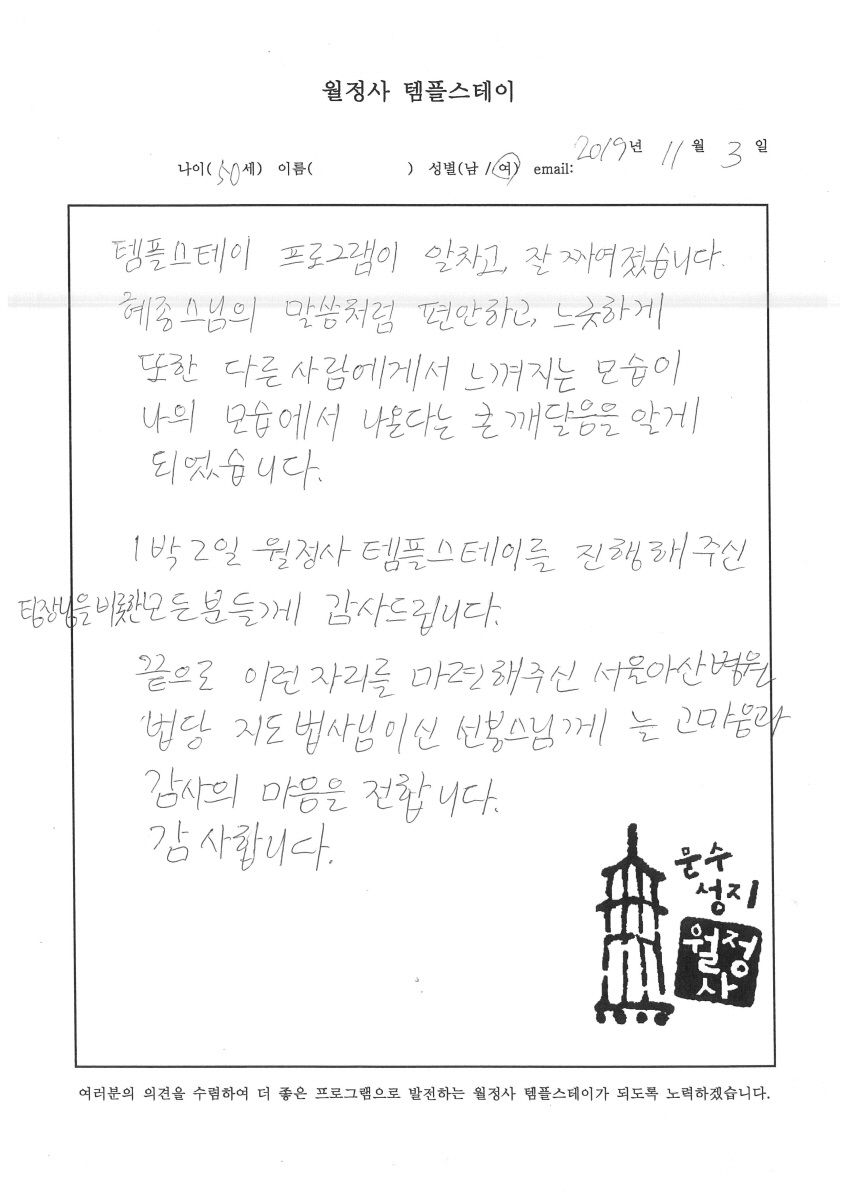 월정사 템플스테이
2019년 11월 3일
나이(50세) 이름( ) 성별(남/여) email:
템플스테이 프로그램이 알차고, 잘 짜여졌습니다.
혜종스님의 말씀처럼 편안하고, 느긋하게
또한 다른 사람에게서 느껴지는 모습이
나의 모습에서 나온다는 큰 깨달음을 알게
되었습니다.
1박 2일 월정사 템플스테이를 진행해 주신
팀장님을 비롯한 모든 분들께 감사드립니다.
끝으로 이런 자리를 마련해주신 서울아산병원
법당 지도법사님이신 선봉스님께 늘 고마움과
감사의 마음을 전합니다.
감사합니다.
문수
성지
월정
사
여러분의 의견을 수렴하여 더 좋은 프로그램으로 발전하는 월정사 템플스테이가 되도록 노력하겠습니다.